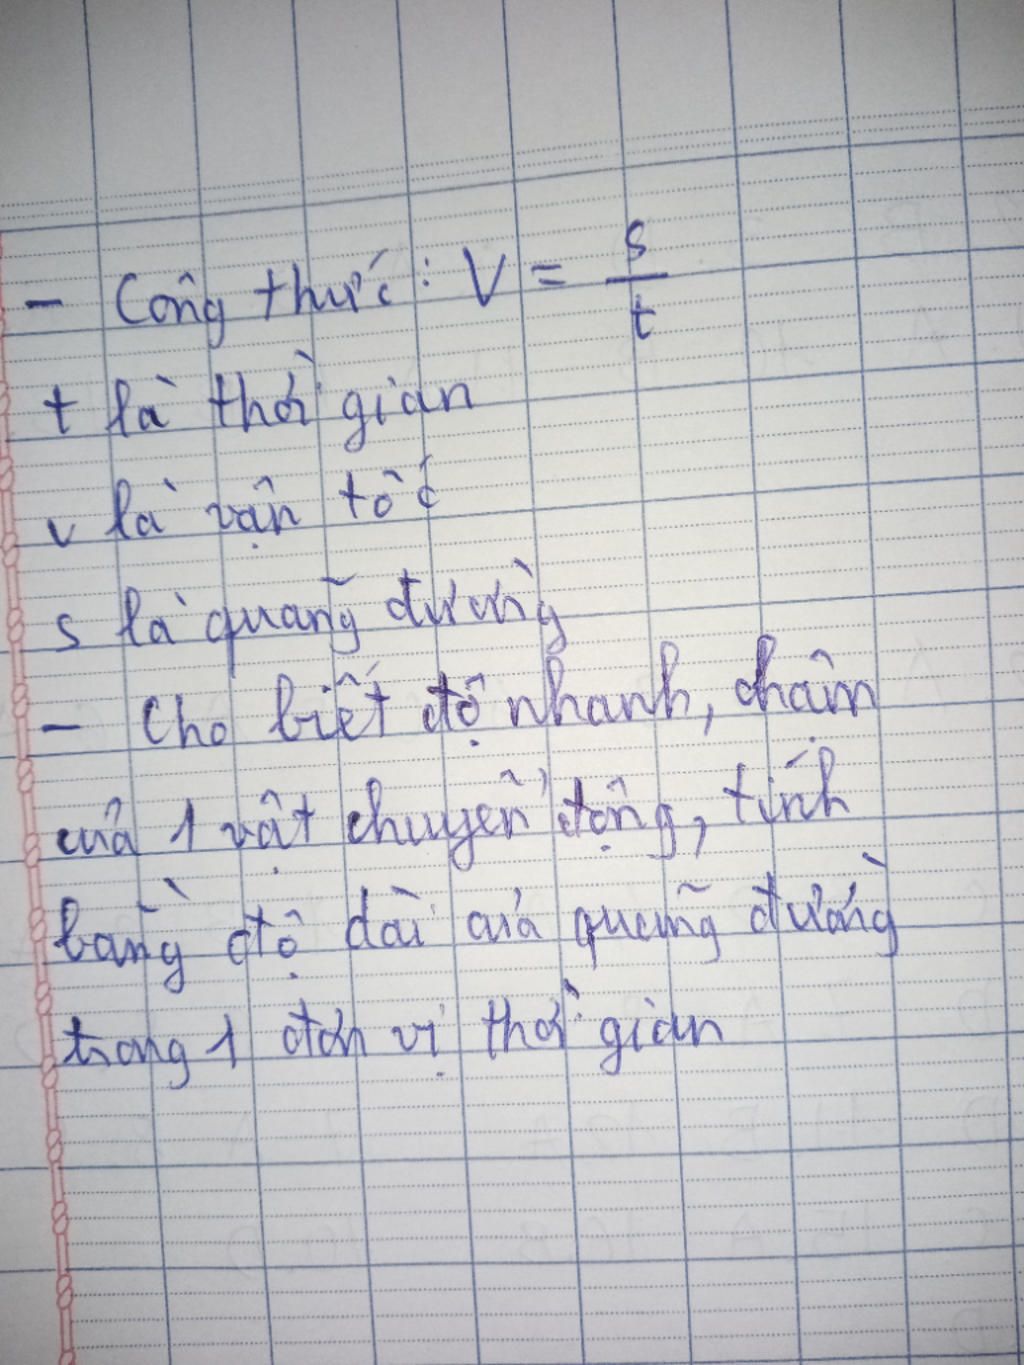 - Công thức: V = s/t
t là thời gian
v là vận tốc
s là quãng đường
- Cho biết độ nhanh, chậm
của 1 vật chuyển động, tính
bằng độ dài của quãng đường
trong 1 đơn vị thời gian